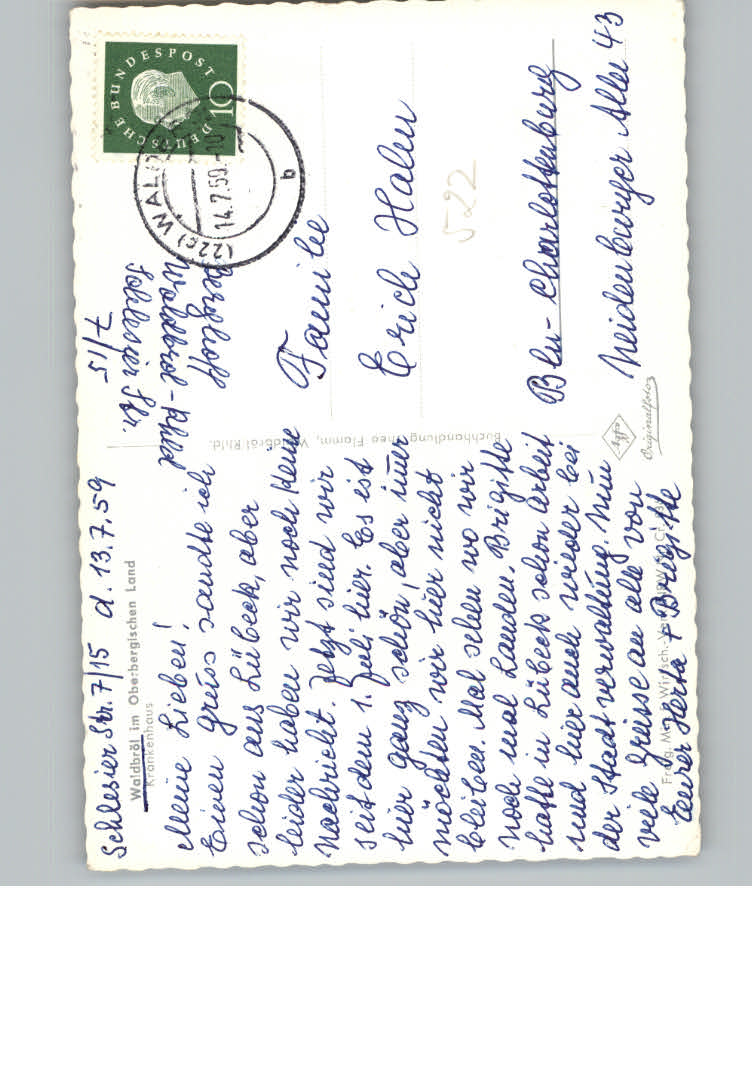 Schlesier Str. 7/15 d. 13.7.59
Waldbröl im Oberbergischen Land
Krankenhaus
Meine Lieben!
Einen Gruss sandte ich
schon aus Lübeck, aber
leider haben wir noch keine
Nachricht. Jetzt sind wir
seit dem 1. Juli hier. Es ist
hier ganz schön, aber imer
möchten wir hier nicht
bleiben. Mal sehen wo wir
noch mal landen. Brigitte
hatte in Lübeck schon Arbeit
und hier auch wieder bei
der Stadtverwaltung. Nun
viele Grüsse an alle von
Eurer Herta + Brigitte
Buchhandlung Theo Flamm, Waldbröl Rhld.
Agfa
Originalfoto
51/7
Schlesier Str.
Waldbröl-Rhld
Berghoff
DEUTSCHE BUNDESPOST
10
(22c) WALDBRÖL
14.7.59.-10
b
Familie
Erich Hahn
522
Bln-Charlottenburg
Neidenburger Allee 43